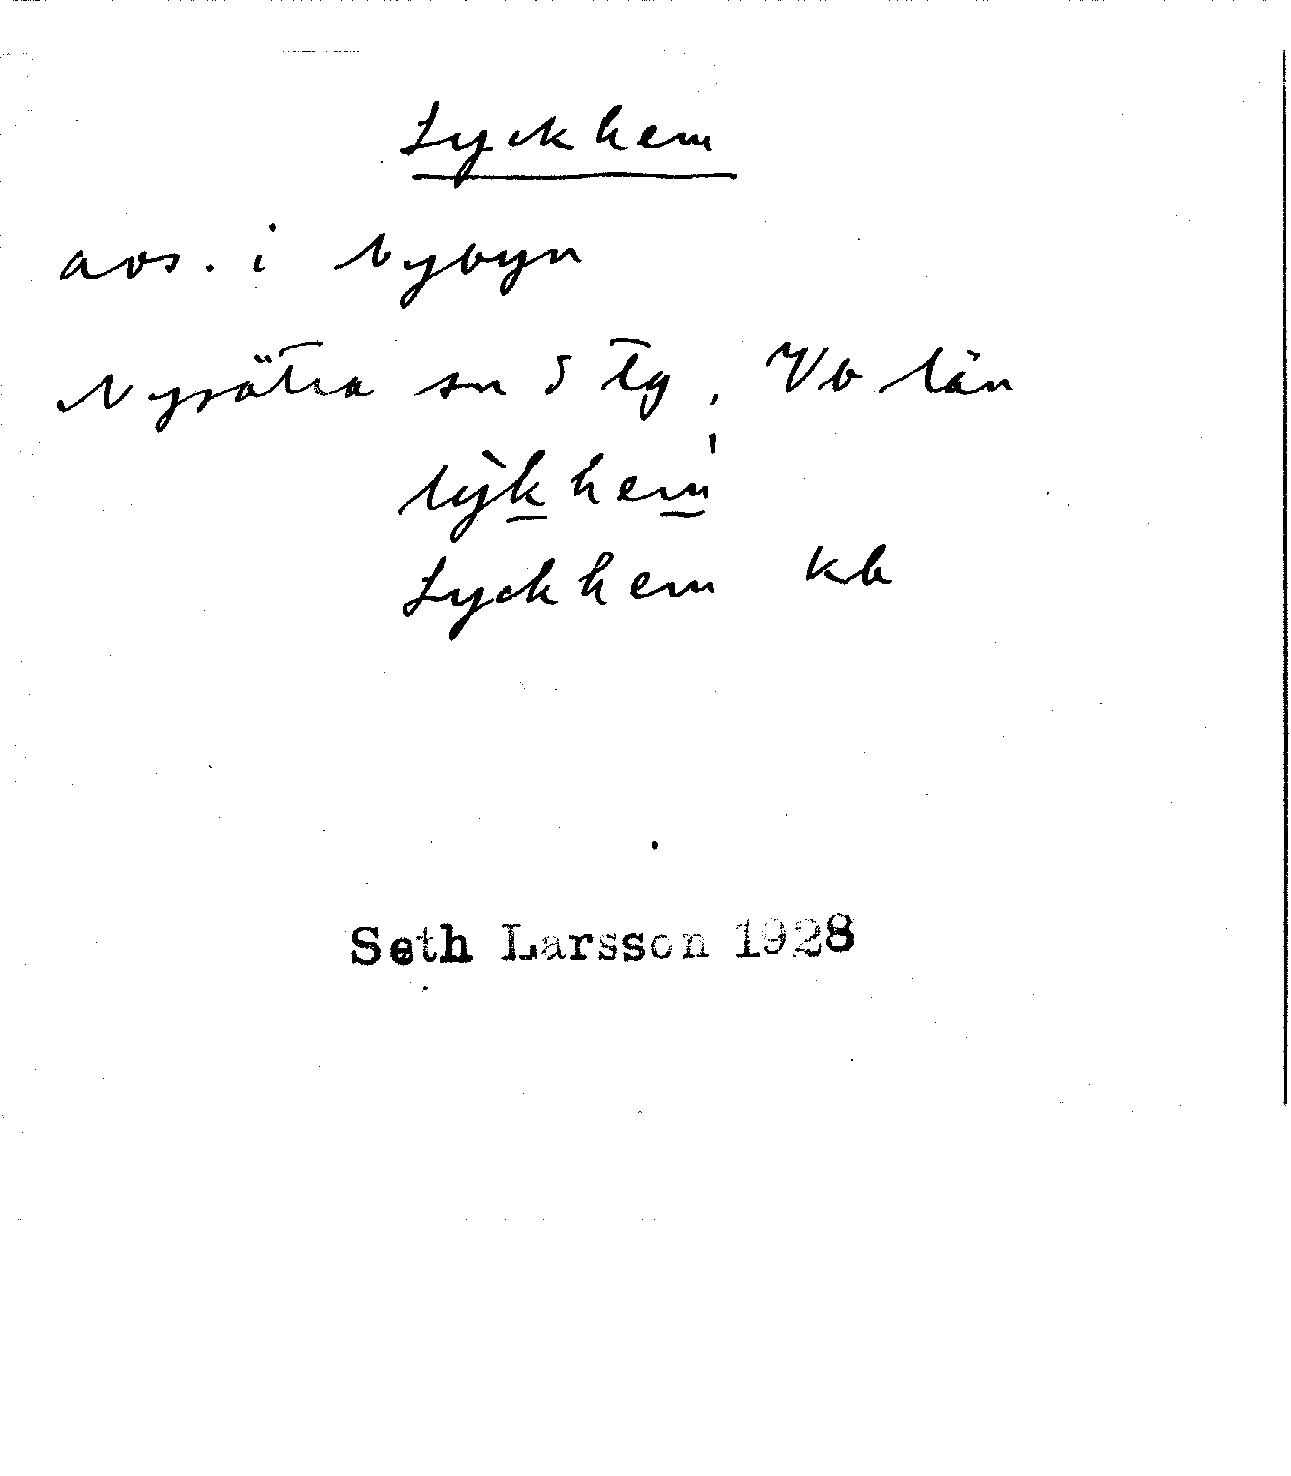 Lyckhem
avs. i Nybyn
Nysätra sn S tg, Vb län
lỳk̲hem̲ˈ
Lyckhem kb
Seth Larsson 1928